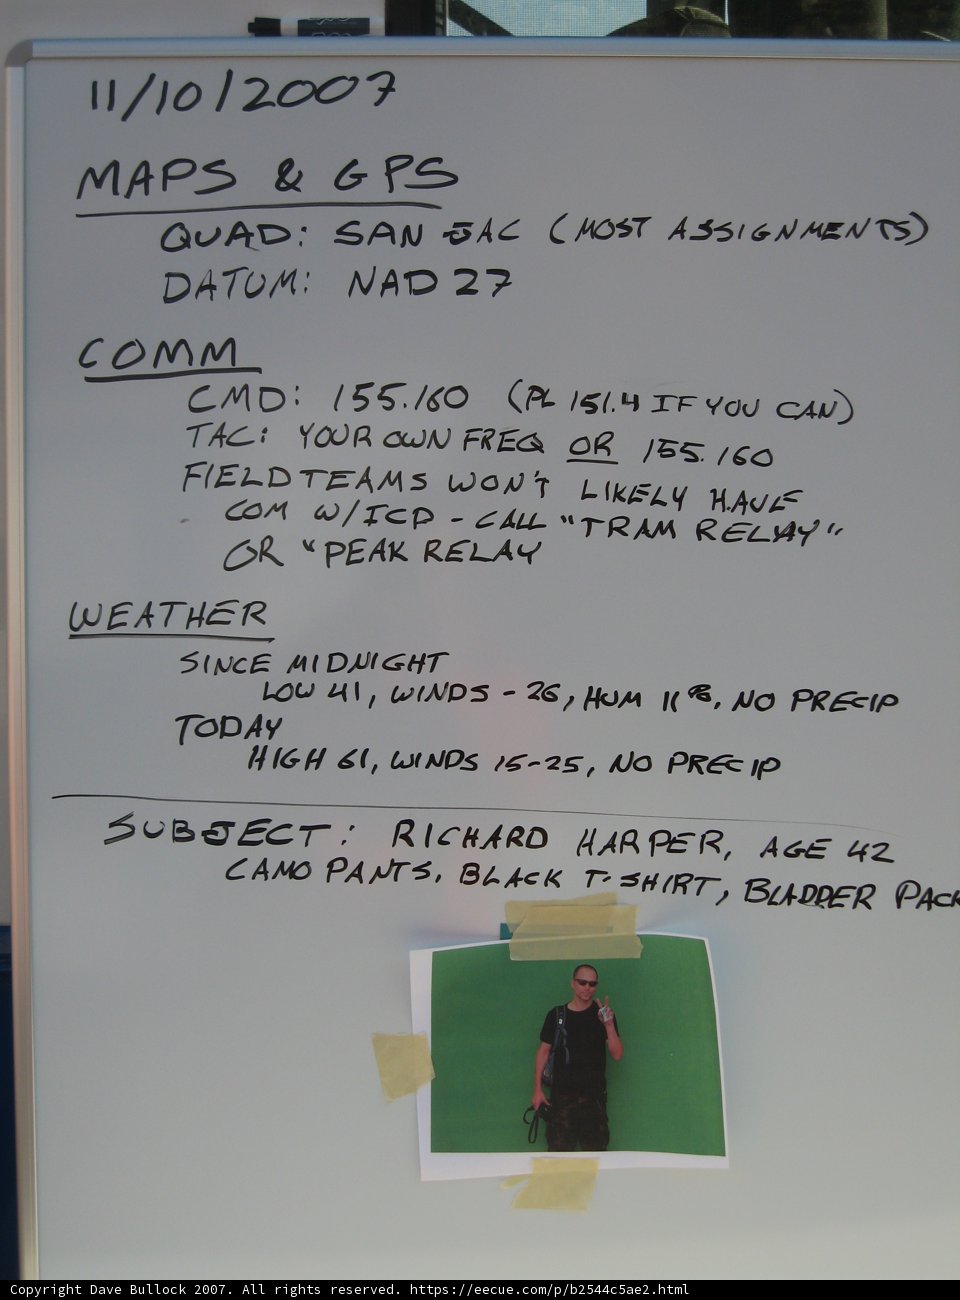 11/10/2007
MAPS & GPS
QUAD: SAN JAC (MOST ASSIGNMENTS)
DATUM: NAD 27
COMM
CMD: 155.160 (PL 151.4 IF YOU CAN)
TAC: YOUR OWN FREQ OR 155.160
FIELD TEAMS WON'T LIKELY HAVE
COM W/ICP - CALL "TRAM RELAY"
OR "PEAK RELAY
WEATHER
SINCE MIDNIGHT
LOW 41, WINDS - 26, HUM 11%, NO PRECIP
TODAY
HIGH 61, WINDS 15-25, NO PRECIP
SUBJECT: RICHARD HARPER, AGE 42
CAMO PANTS, BLACK T-SHIRT, BLADDER PACK
Copyright Dave Bullock 2007. All rights reserved. https://eecue.com/p/b2544c5ae2.html